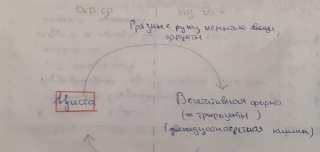 Грязные руки, немытые овощи
фрукты
Циста
Вегетативная форма
(= трофозоиты)
(двенадцатиперстная кишка)